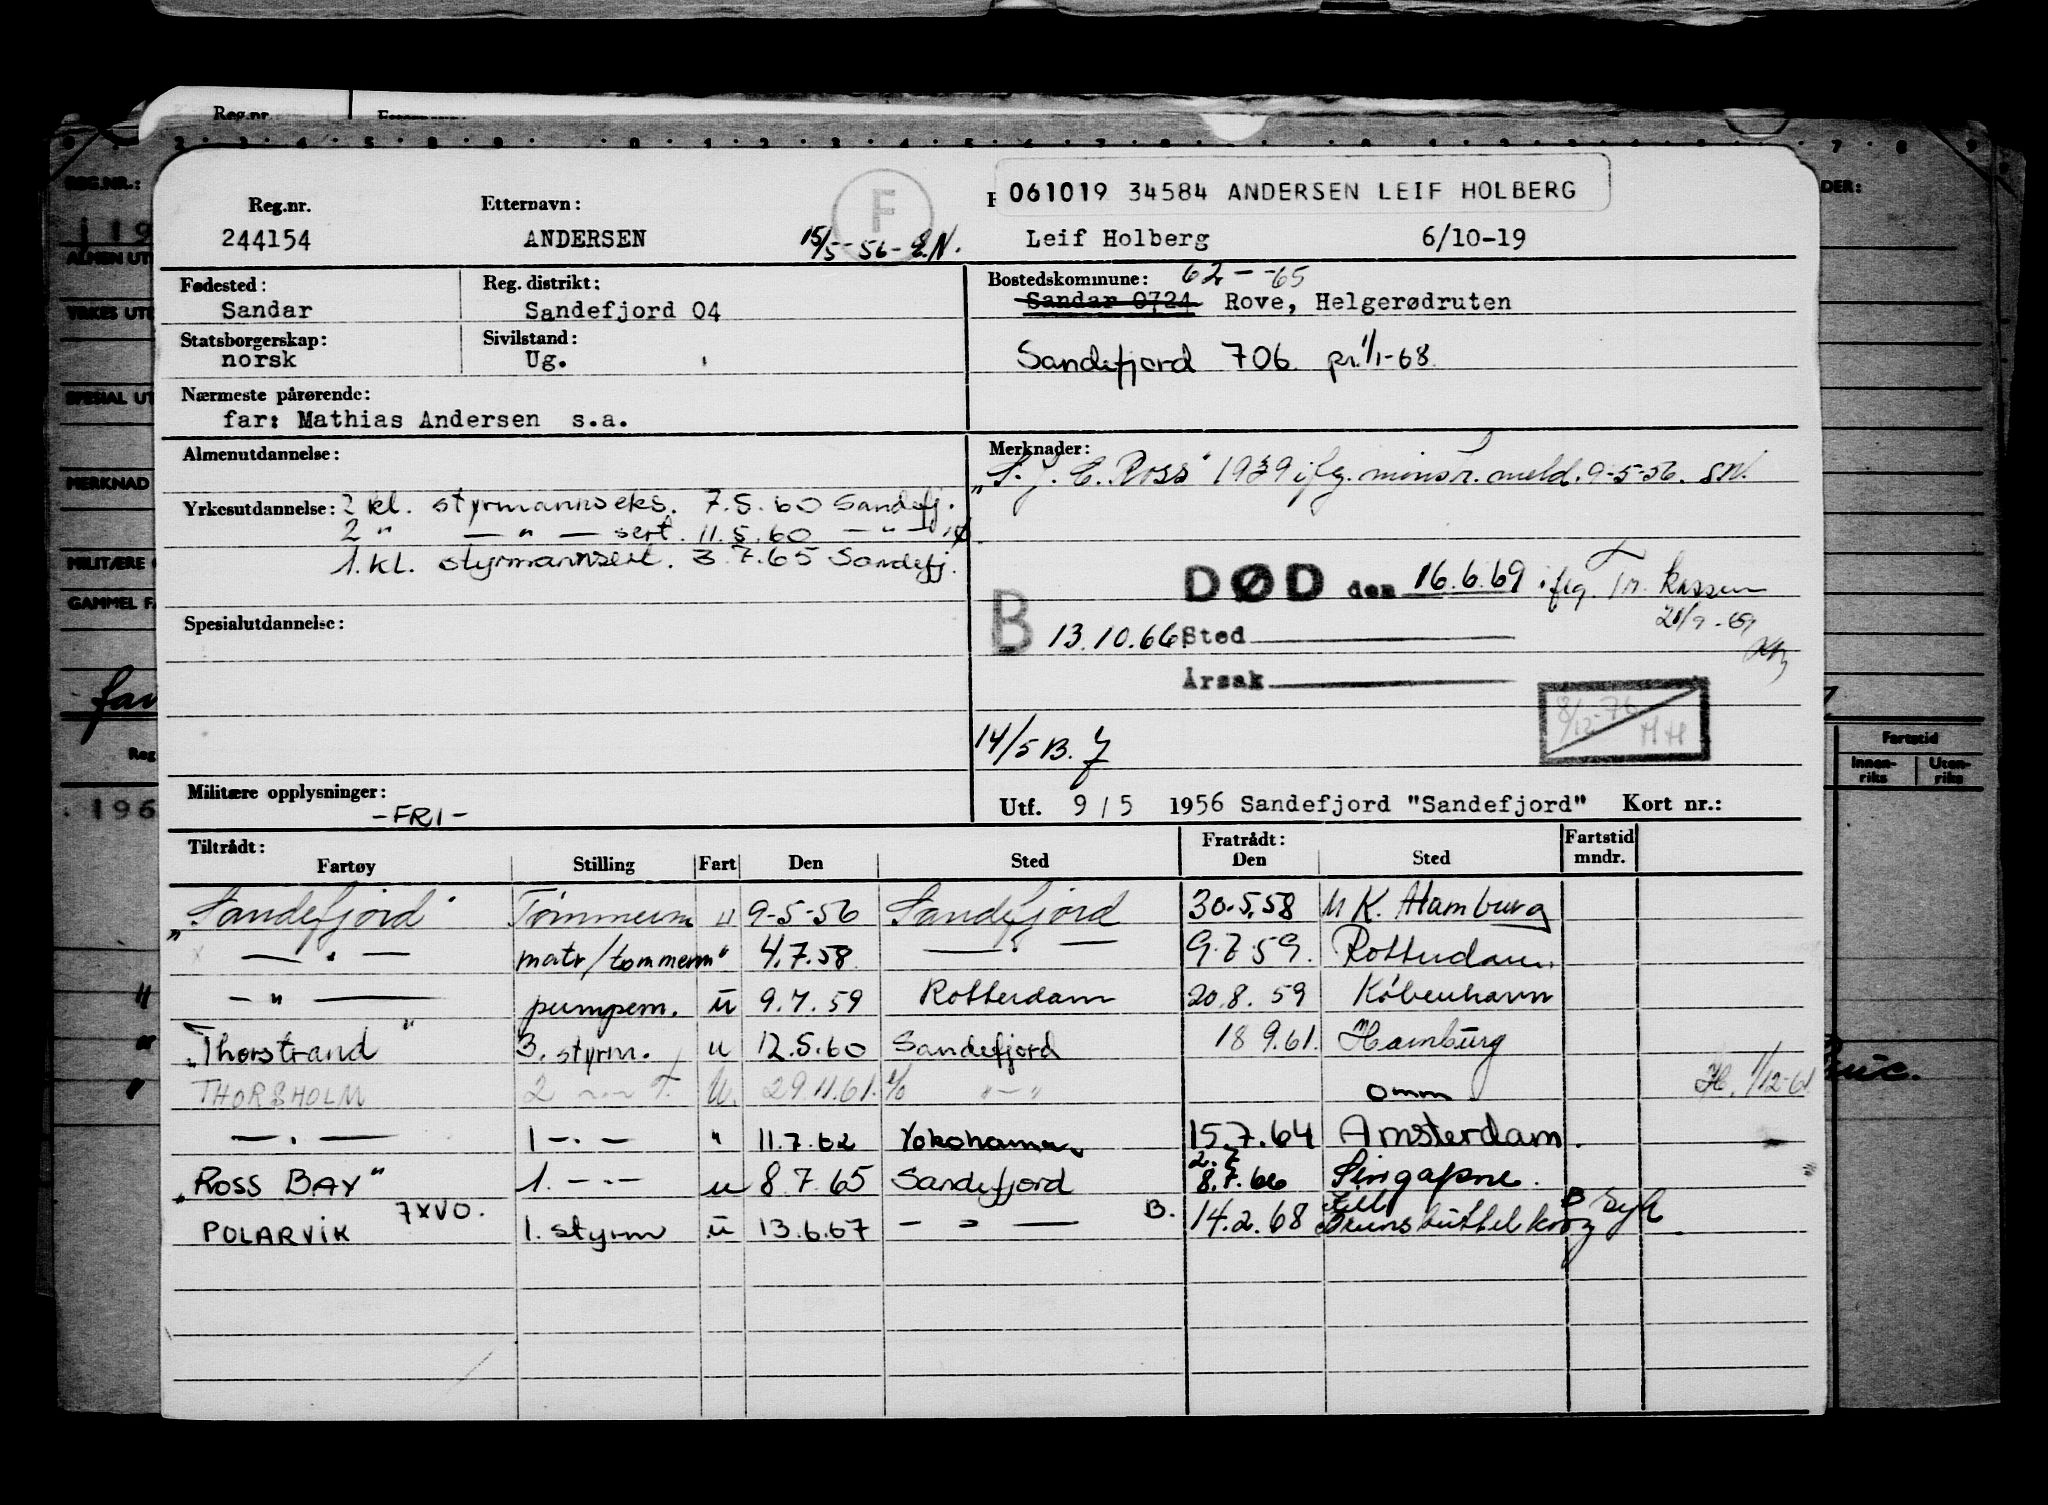 Reg.nr.
061019 34584 ANDERSEN LEIF HOLBERG
Reg.nr. Etternavn: F
244154 ANDERSEN 15/5-56- E.N. Leif Holberg 6/10-19
Fødested: Reg. distrikt: Bostedskommune: 62--65
Sandar Sandefjord 04 Sandar 0724 Rove, Helgerødruten
Statsborgerskap: Sivilstand:
norsk Ug. Sandefjord 706 pr. 1/1-68
Nærmeste pårørende:
far: Mathias Andersen s.a.
Almenutdannelse: Merknader:
"S. J. C. Ross" 1939 ifg. mønstr. meld. 9-5-56. SN.
Yrkesutdannelse: 2 kl. styrmannseks. 7.5.60 Sandefj.
2 " — " — sert. 11.5.60 — " —
1. kl. styrmannsert. 3.7.65 Sandefj.
DØD den 16.6.69 iflg. Tr. kassen
21/7-69
Spesialutdannelse: B 13.10.66 Sted
Årsak
8/12-76 HH
14/5 B. J
Militære opplysninger: -FRI-
Utf. 9/5 1956 Sandefjord "Sandefjord" Kort nr.:
Tiltrådt: Fratrådt: Fartstid
Fartøy Stilling Fart Den Sted Den Sted mndr.
"Sandefjord" Tømmerm u 9-5-56 Sandefjord 30.5.58 M K. Hamburg
— " — matr/tømmerm " 4.7.58 — " — 9.7.59. Rotterdam
— " — pumpem. u 9.7.59 Rotterdam 20.8.59 København
"Thorstrand" 3. styrm. u 12.5.60 Sandefjord 18 9.61. Hamburg
THORSHOLM 2 — " — T. U. 29.11.61. " — " omm H. 1/12-61
— " — 1 — " — " 11.7.62 Yokohama 15.7.64 Amsterdam.
2.7
"ROSS BAY" 1. — " — u 8.7.65 Sandefjord 8.7.66 Singapore.
7XVO.
POLARVIK 1. styrm u 13.6.67 — " — B. 14.2.68 Brunsbüttelkoog B syk
REG.NR.:
MERKNAD
Fartstid
Innen-
riks
Uten-
riks